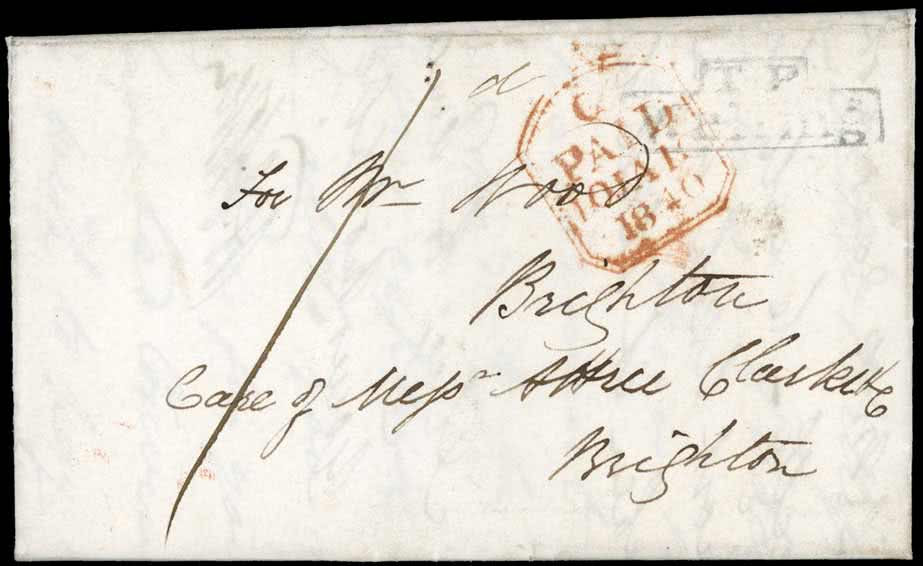 d
T.P
C
PAID
10 JA 10
1840
For Mr Wood
Brighton
Care of Messrs Attree Clarke &c
Brighton